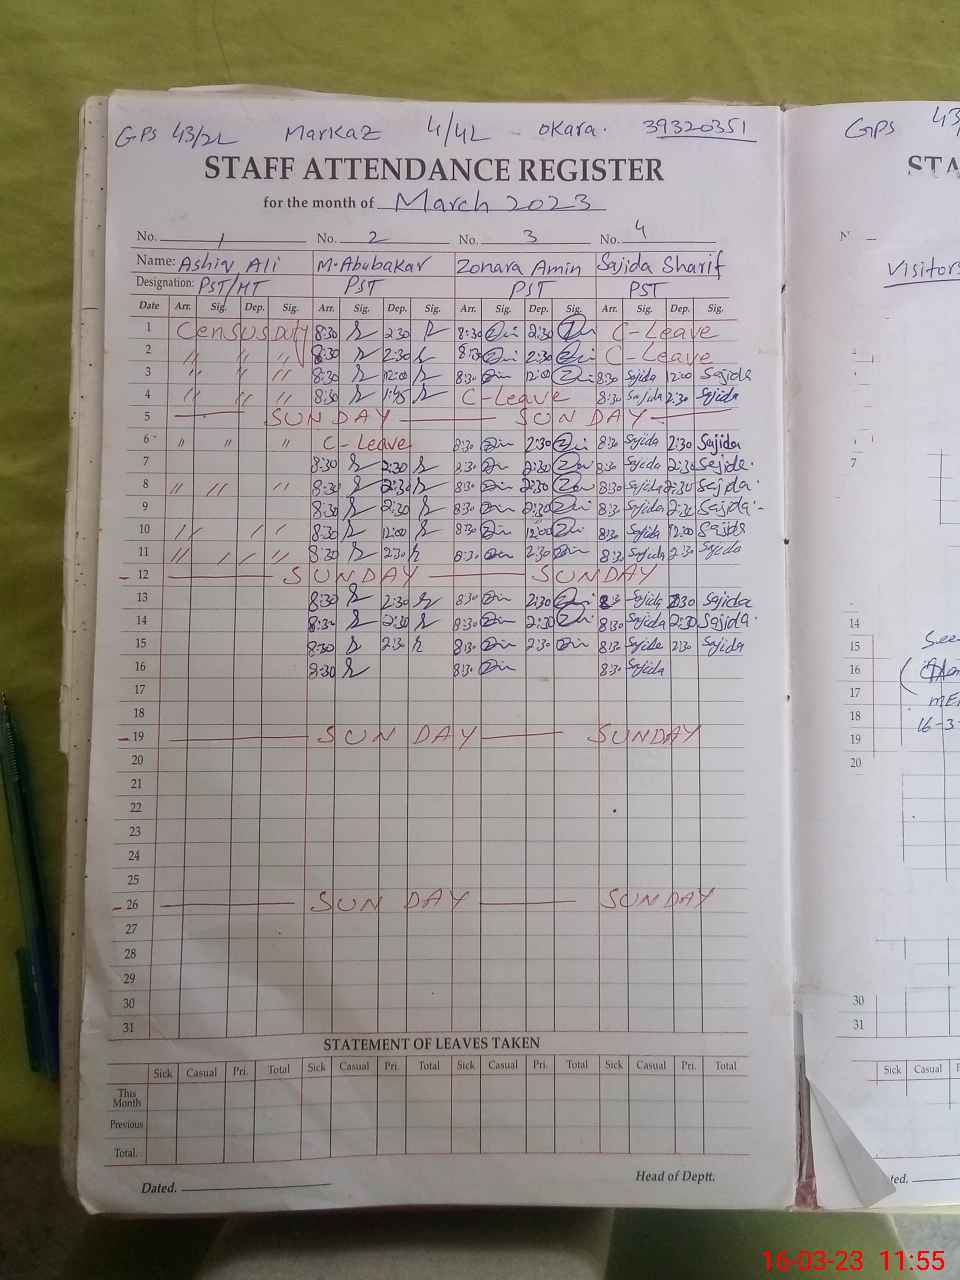 GPS 43/2L Markaz 4/4L - Okara. 39320351
STAFF ATTENDANCE REGISTER
for the month of March 2023
No. 1 No. 2 No. 3 No. 4
Name: Ashiq Ali M.Abubakar Zonara Amin Sajida Sharif
Designation: PST/HT PST PST PST
Date Arr. Sig. Dep. Sig. Arr. Sig. Dep. Sig. Arr. Sig. Dep. Sig. Arr. Sig. Dep. Sig.
1 Census duty 8:30 2:30 8:30 2:30 C-Leave
2 " " " 8:30 2:30 8:30 2:30 C-Leave
3 " " " 8:30 12:00 8:30 12:00 8:30 Sajida 12:00 Sajida
4 " " " 8:30 1:45 C-Leave 8:30 Sajida 2:30 Sajida
5 SUNDAY SUNDAY
6 " " " C-Leave 8:30 2:30 8:30 Sajida 2:30 Sajida
7 8:30 2:30 8:30 2:30 8:30 Sajida 2:30 Sajida
8 " " " 8:30 2:30 8:30 2:30 8:30 Sajida 2:30 Sajida
9 8:30 2:30 8:30 2:30 8:30 Sajida 2:30 Sajida
10 " " " 8:30 12:00 8:30 12:00 8:30 Sajida 12:00 Sajida
11 " " " " 8:30 2:30 8:30 2:30 8:30 Sajida 2:30 Sajida
12 SUNDAY SUNDAY
13 8:30 2:30 8:30 2:30 8:30 Sajida 2:30 Sajida
14 8:30 2:30 8:30 2:30 8:30 Sajida 2:30 Sajida
15 8:30 2:30 8:30 2:30 8:30 Sajida 2:30 Sajida
16 8:30 8:30 8:30 Sajida
17
18
19 SUNDAY SUNDAY
20
21
22
23
24
25
26 SUNDAY SUNDAY
27
28
29
30
31
STATEMENT OF LEAVES TAKEN
Sick Casual Pri. Total Sick Casual Pri. Total Sick Casual Pri. Total Sick Casual Pri. Total
This Month
Previous
Total.
Dated. Head of Deptt.
GPS 43
STA
Visitors
7
14
15 See
16
17
18 16-3
19
20
30
31
Sick Casual
16-03-23 11:55